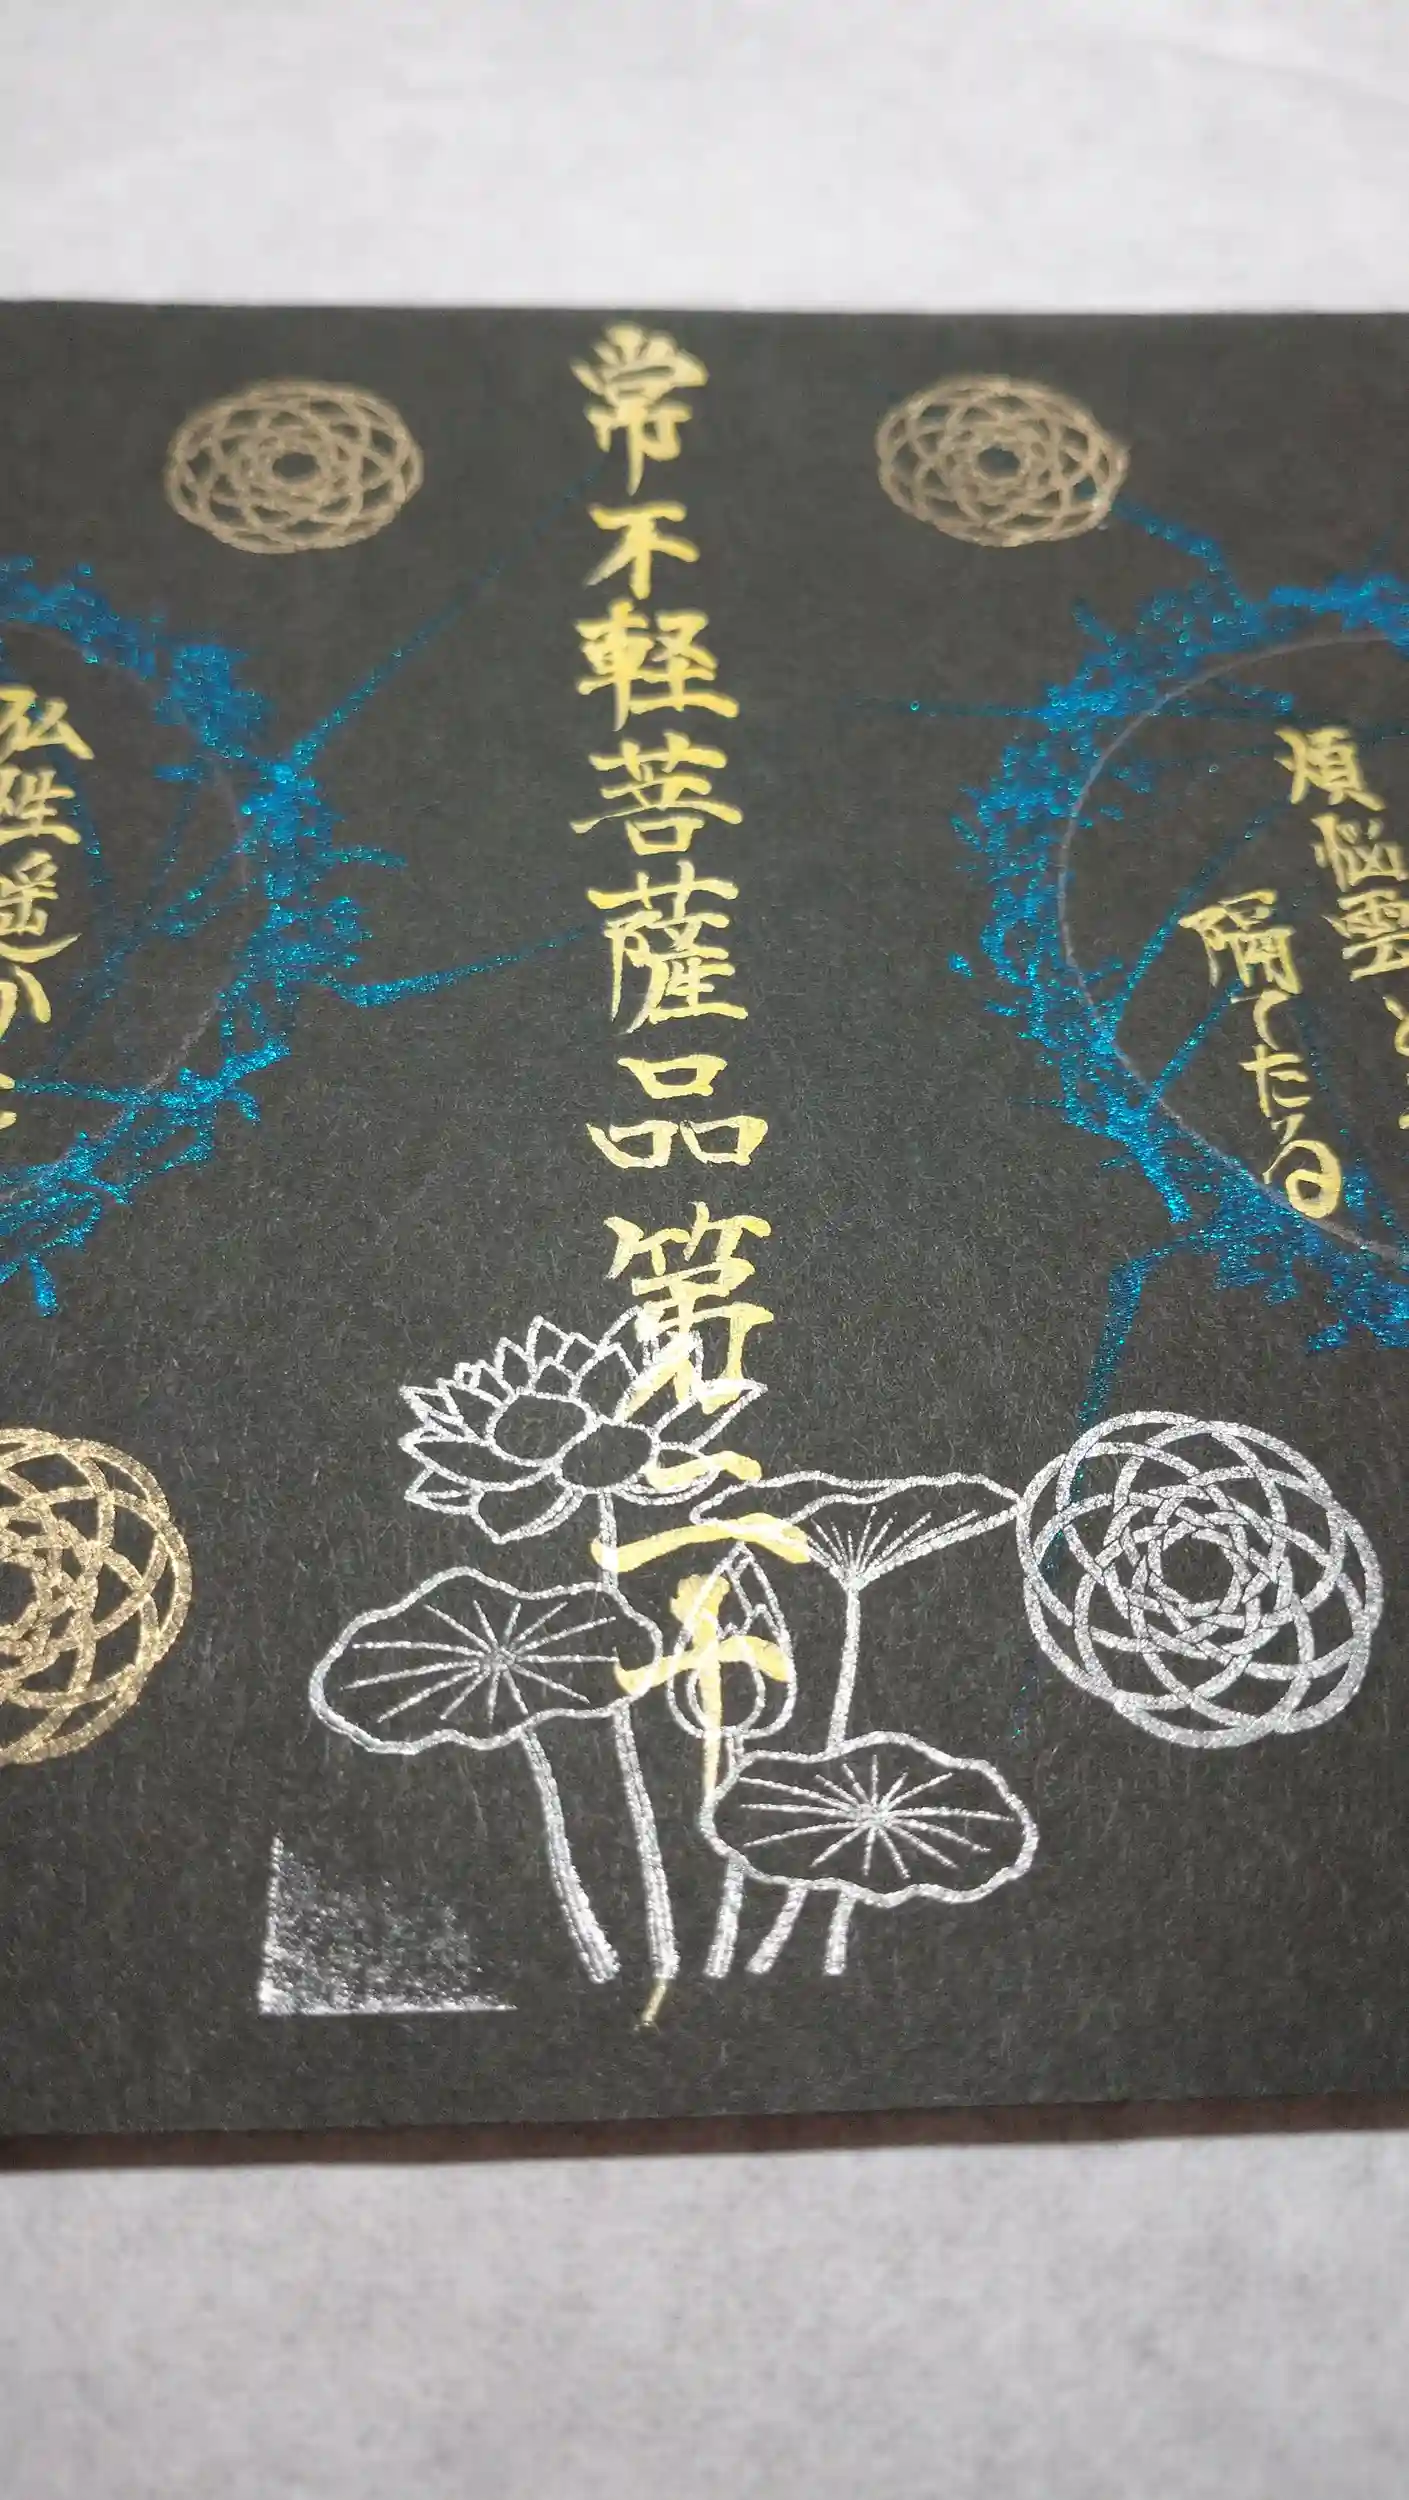 煩悩雲と
隔てたる
常不軽菩薩品第二十
仏性遥か